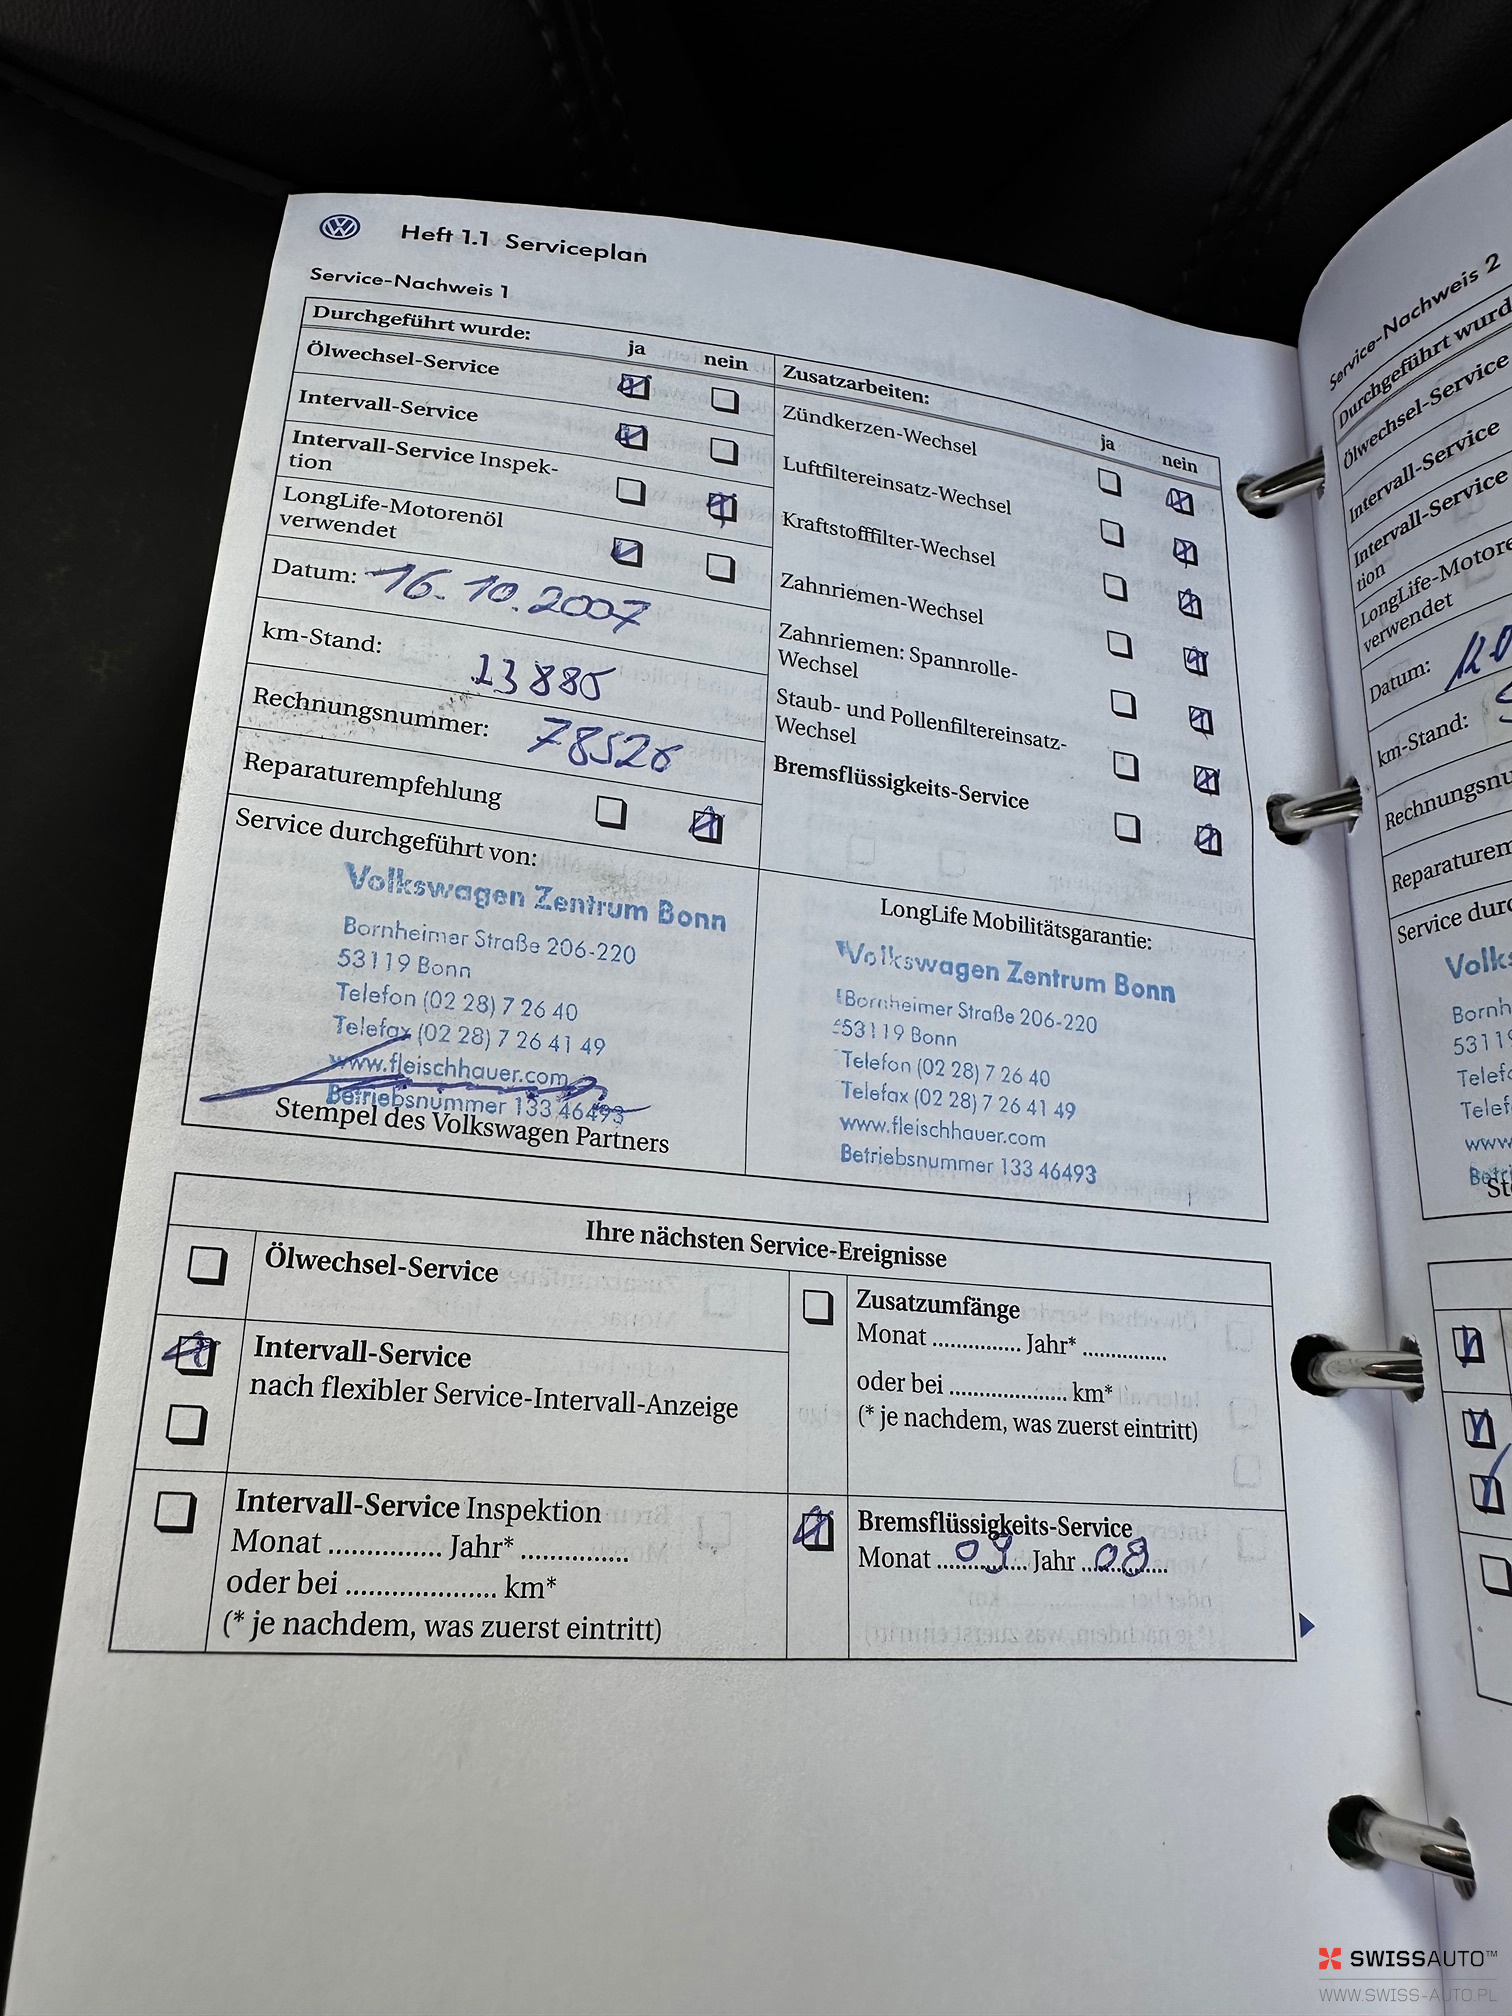 Heft 1.1 Serviceplan
Service-Nachweis 1
Durchgeführt wurde: ja nein
Ölwechsel-Service
Intervall-Service
Intervall-Service Inspek-
tion
LongLife-Motorenöl
verwendet
Datum: 16.10.2007
km-Stand: 23885
Rechnungsnummer: 78526
Reparaturempfehlung
Service durchgeführt von:
Volkswagen Zentrum Bonn
Bornheimer Straße 206-220
53119 Bonn
Telefon (02 28) 7 26 40
Telefax (02 28) 7 26 41 49
www.fleischhauer.com
Betriebsnummer 133 46493
Stempel des Volkswagen Partners
Zusatzarbeiten: ja nein
Zündkerzen-Wechsel
Luftfiltereinsatz-Wechsel
Kraftstofffilter-Wechsel
Zahnriemen-Wechsel
Zahnriemen: Spannrolle-
Wechsel
Staub- und Pollenfiltereinsatz-
Wechsel
Bremsflüssigkeits-Service
LongLife Mobilitätsgarantie:
Volkswagen Zentrum Bonn
Bornheimer Straße 206-220
53119 Bonn
Telefon (02 28) 7 26 40
Telefax (02 28) 7 26 41 49
www.fleischhauer.com
Betriebsnummer 133 46493
Ihre nächsten Service-Ereignisse
Ölwechsel-Service
Intervall-Service
nach flexibler Service-Intervall-Anzeige
Intervall-Service Inspektion
Monat ............... Jahr* ...............
oder bei ..................... km*
(* je nachdem, was zuerst eintritt)
Zusatzumfänge
Monat ............... Jahr* ...............
oder bei ..................... km*
(* je nachdem, was zuerst eintritt)
Bremsflüssigkeits-Service
Monat 09 Jahr 08
Service-Nachweis 2
Durchgeführt
Ölwechsel-Service
Intervall-Service
Intervall-Service
tion
verwendet
Datum:
km-Stand:
Service
53119
www
SWISSAUTO™
WWW.SWISS-AUTO.PL